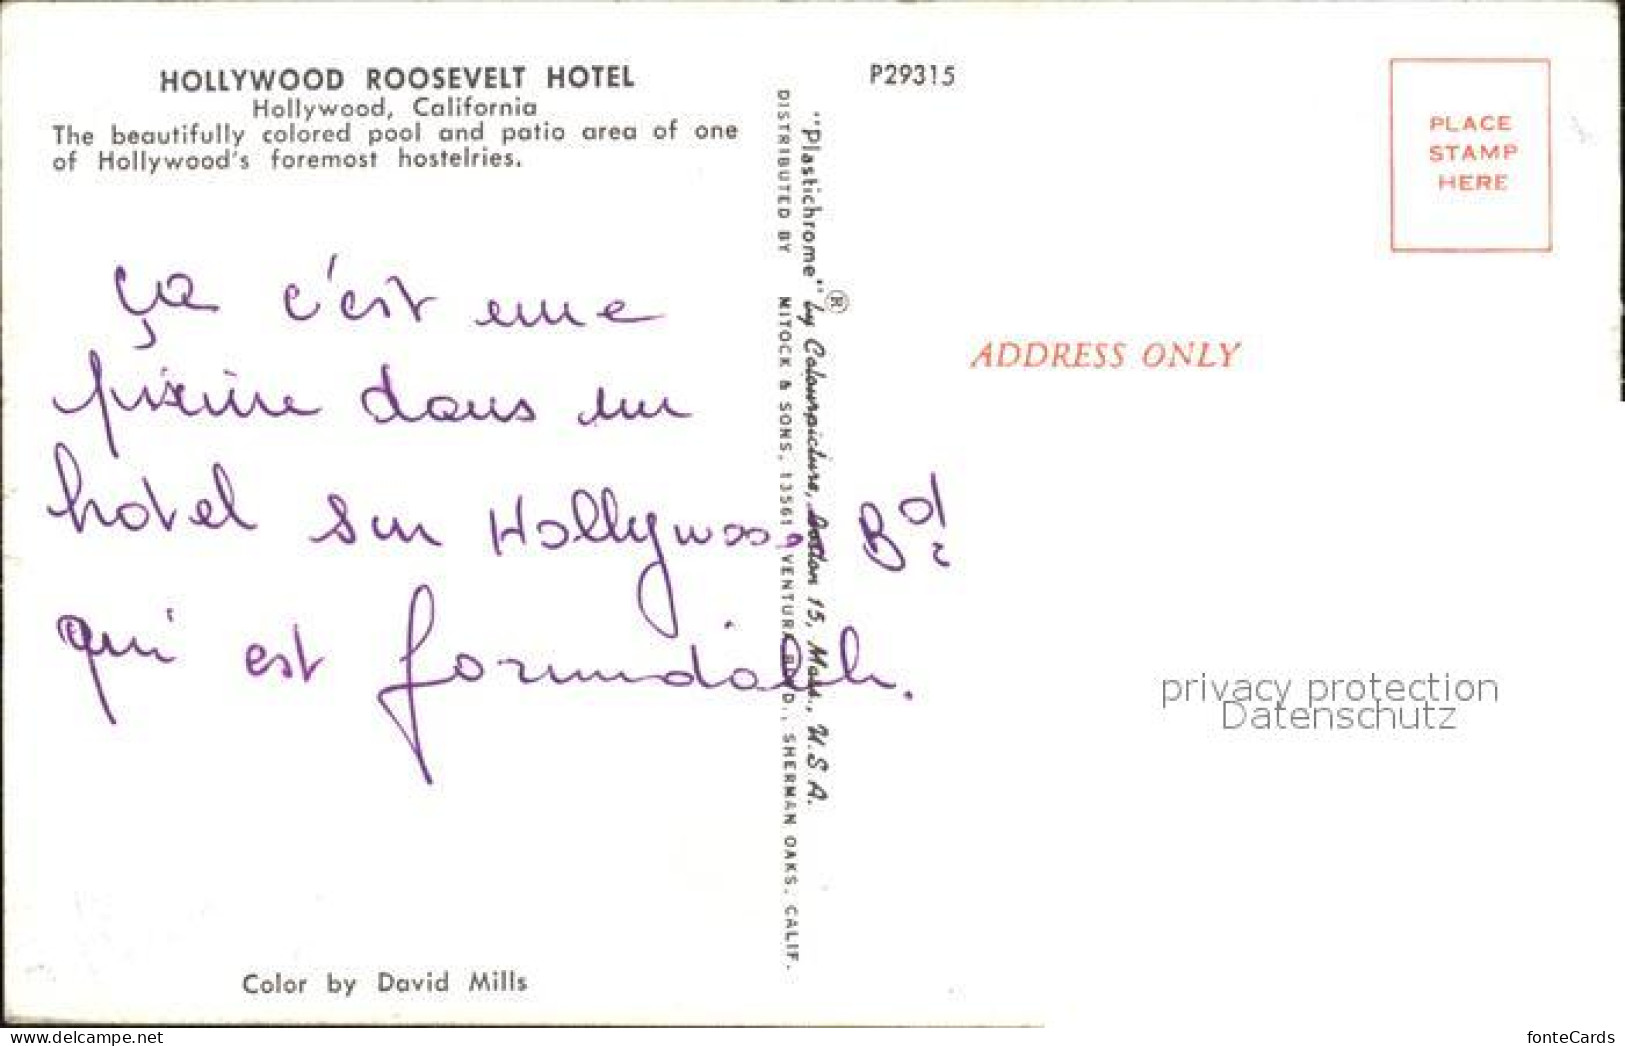 HOLLYWOOD ROOSEVELT HOTEL
Hollywood, California
The beautifully colored pool and patio area of one
of Hollywood's foremost hostelries.
ça c'est une
piscine dans un
hotel sur Hollywood Bd
qui est formidable.
Color by David Mills
DISTRIBUTED BY MITOCK & SONS, 13561 VENTURA BLVD., SHERMAN OAKS, CALIF.
"Plastichrome"® by Colourpicture, Boston 15, Mass., U.S.A.
P29315
PLACE
STAMP
HERE
ADDRESS ONLY
privacy protection
Datenschutz
www.delcampe.net
fonteCards